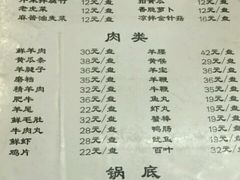 老虎菜 12元/盘 香辣萝卜 12元/盘
麻酱油麦菜 12元/盘 凉拌金针菇 16元/盘
肉类
鲜羊肉 30元/盘 羊腰 42元/盘
黄瓜条 38元/盘 黄喉 29元/盘
羊腱子 38元/盘 羊宝 36元/盘
磨裆 38元/盘 牛鞭 36元/盘
精羊肉 32元/盘 羊鞭 35元/盘
肥牛 36元/盘 鱼丸 19元/盘
羊尾 22元/盘 虾丸 19元/盘
鲜毛肚 32元/盘 蟹棒 19元/盘
牛肉丸 28元/盘 鸭肠 19元/盘
鲜虾 38元/盘 19元/盘
鸡片 22元/盘 百叶 32元/盘
锅底